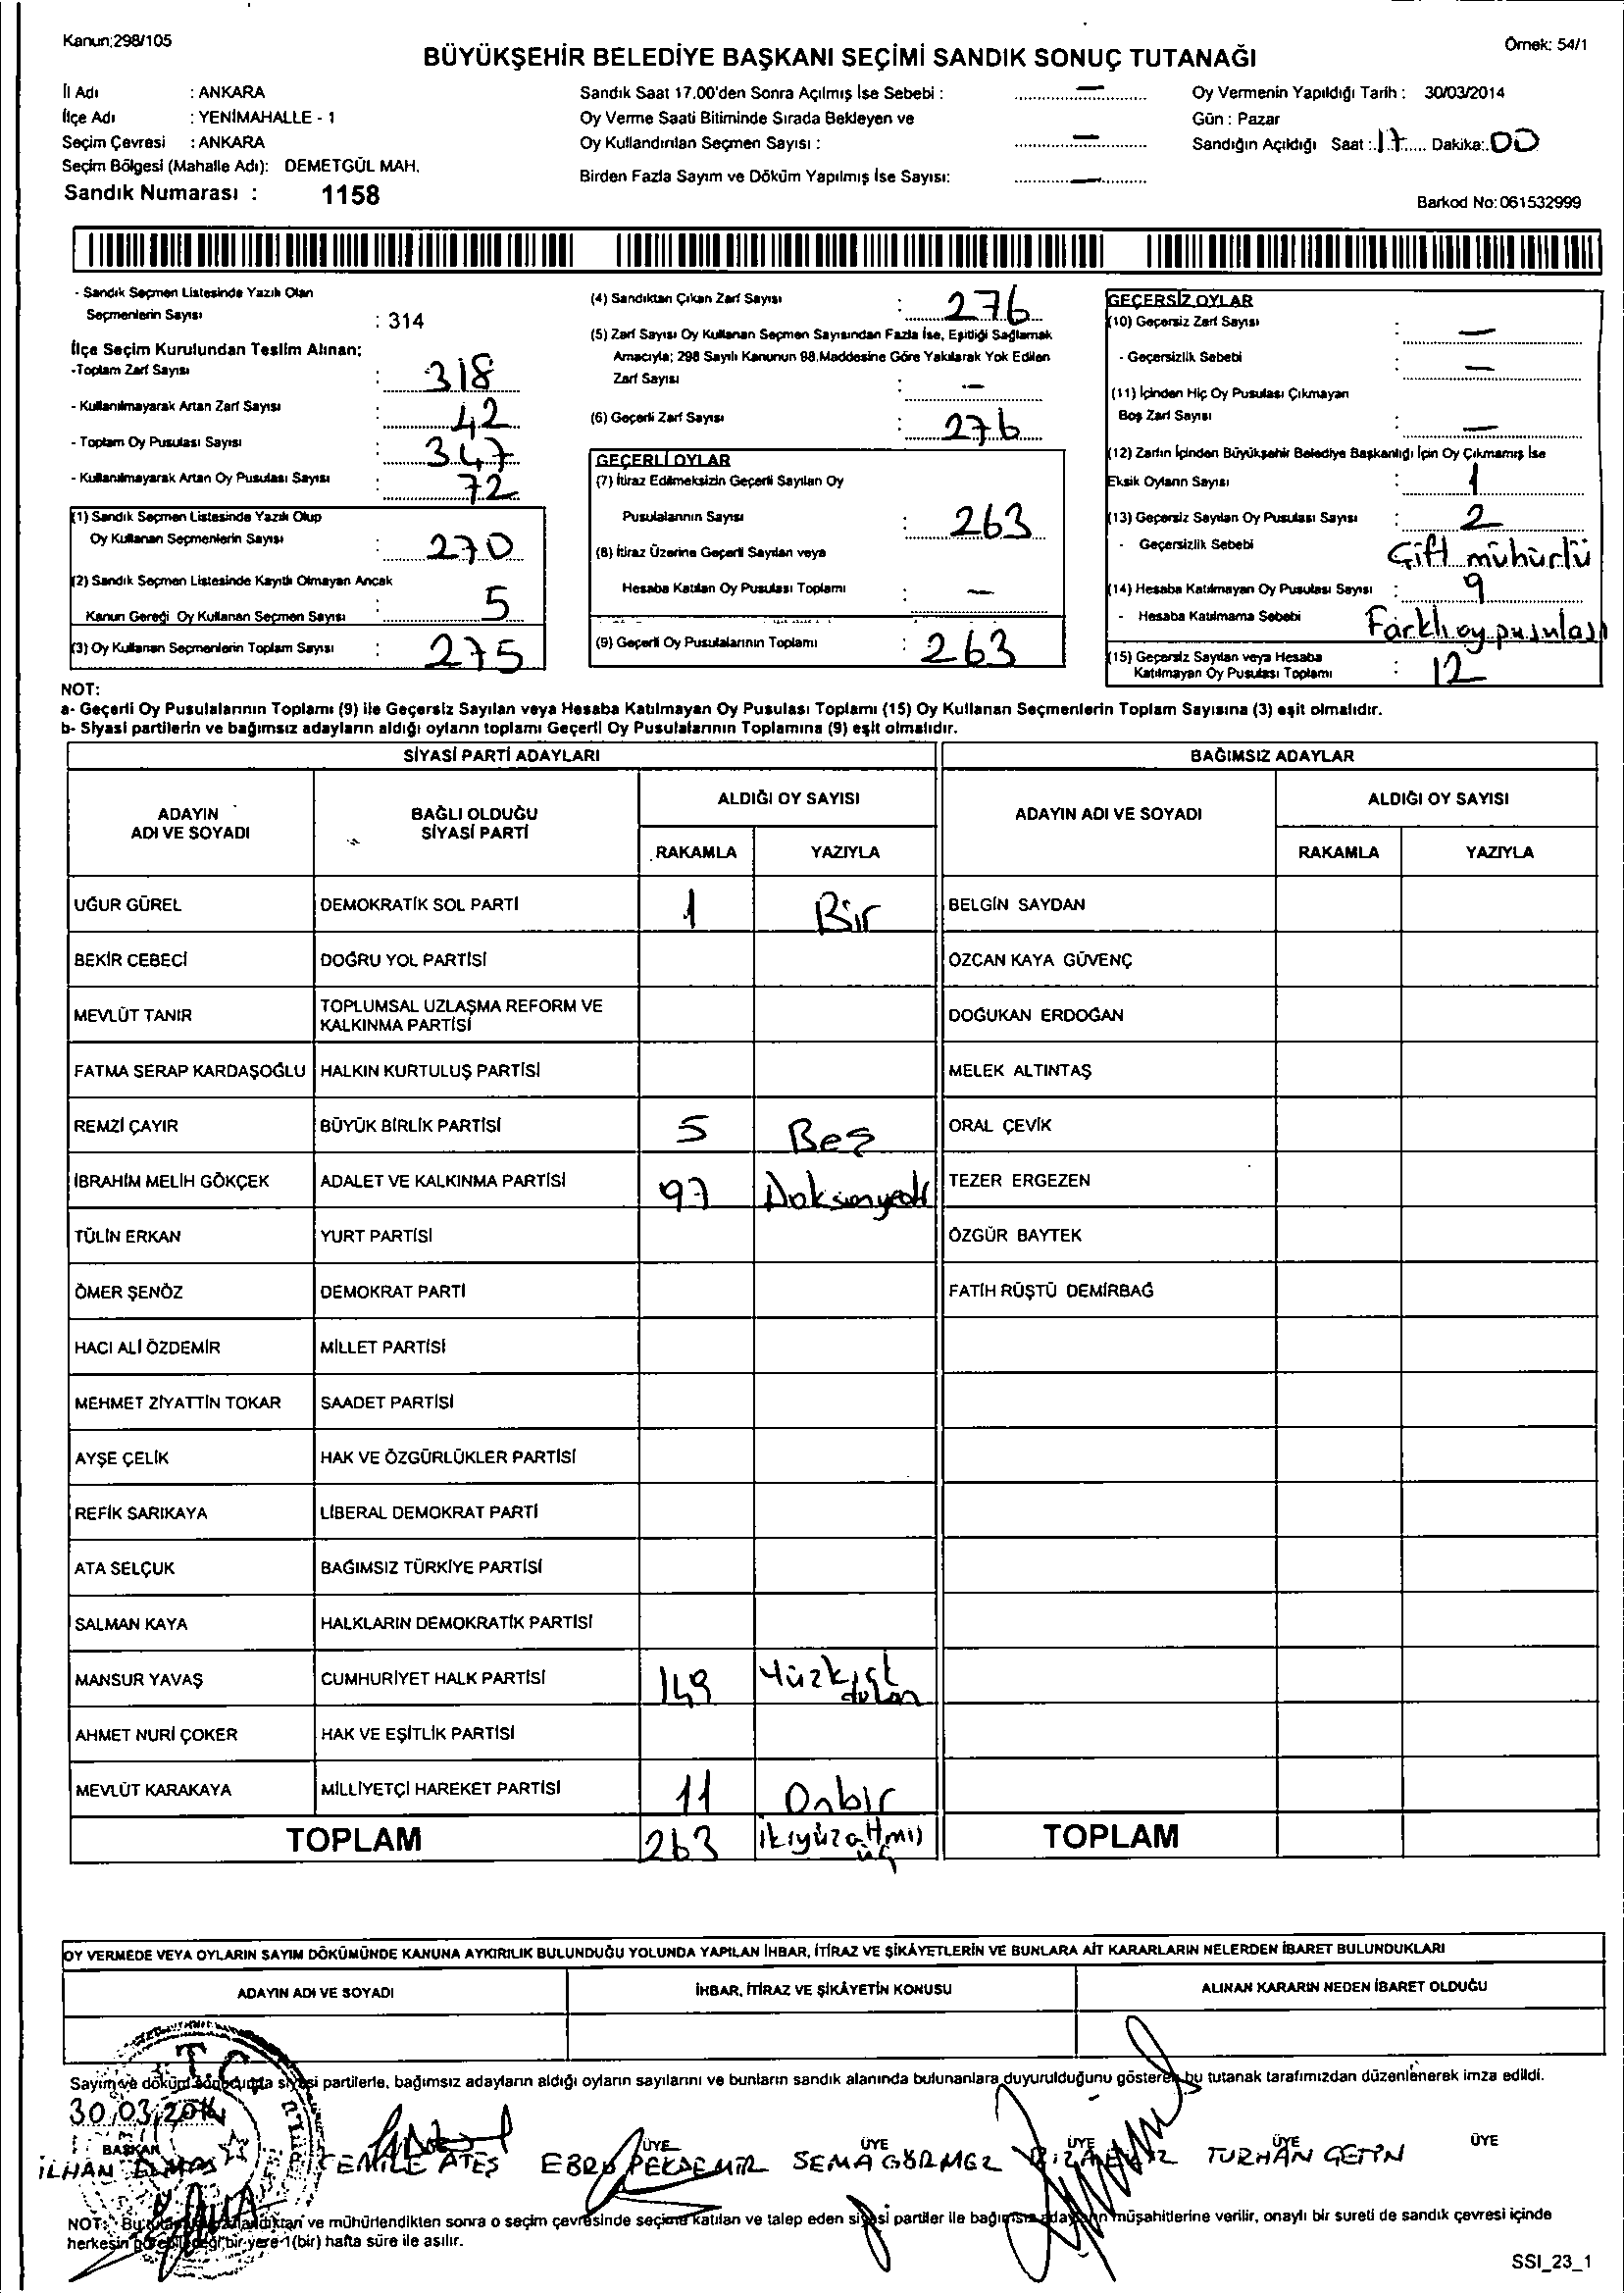 Kanun:298/105
Örnek: 54/1
BÜYÜKŞEHİR BELEDİYE BAŞKANI SEÇİMİ SANDIK SONUÇ TUTANAĞI
İl Adı : ANKARA
İlçe Adı : YENİMAHALLE - 1
Seçim Çevresi : ANKARA
Seçim Bölgesi (Mahalle Adı): DEMETGÜL MAH.
Sandık Numarası : 1158
Sandık Saat 17.00'den Sonra Açılmış İse Sebebi : —
Oy Verme Saati Bitiminde Sırada Bekleyen ve
Oy Kullandırılan Seçmen Sayısı : —
Birden Fazla Sayım ve Döküm Yapılmış İse Sayısı: —
Oy Vermenin Yapıldığı Tarih : 30/03/2014
Gün : Pazar
Sandığın Açıldığı Saat : 17 Dakika: 00
Barkod No: 061532999
- Sandık Seçmen Listesinde Yazılı Olan
Seçmenlerin Sayısı : 314
İlçe Seçim Kurulundan Teslim Alınan;
-Toplam Zarf Sayısı : 318
- Kullanılmayarak Artan Zarf Sayısı : 42
- Toplam Oy Pusulası Sayısı : 347
- Kullanılmayarak Artan Oy Pusulası Sayısı : 72
(1) Sandık Seçmen Listesinde Yazılı Olup
Oy Kullanan Seçmenlerin Sayısı : 270
(2) Sandık Seçmen Listesinde Kayıtlı Olmayan Ancak
Kanun Gereği Oy Kullanan Seçmen Sayısı : 5
(3) Oy Kullanan Seçmenlerin Toplam Sayısı : 275
(4) Sandıktan Çıkan Zarf Sayısı : 276
(5) Zarf Sayısı Oy Kullanan Seçmen Sayısından Fazla İse, Eşitliği Sağlamak
Amacıyla; 298 Sayılı Kanunun 98.Maddesine Göre Yakılarak Yok Edilen
Zarf Sayısı : —
(6) Geçerli Zarf Sayısı : 276
GEÇERLİ OYLAR
(7) İtiraz Edilmeksizin Geçerli Sayılan Oy
Pusulalarının Sayısı : 263
(8) İtiraz Üzerine Geçerli Sayılan veya
Hesaba Katılan Oy Pusulası Toplamı : —
(9) Geçerli Oy Pusulalarının Toplamı : 263
GEÇERSİZ OYLAR
(10) Geçersiz Zarf Sayısı : —
- Geçersizlik Sebebi : —
(11) İçinden Hiç Oy Pusulası Çıkmayan
Boş Zarf Sayısı : —
(12) Zarfın İçinden Büyükşehir Belediye Başkanlığı İçin Oy Çıkmamış İse
Eksik Oyların Sayısı : 1
(13) Geçersiz Sayılan Oy Pusulası Sayısı : 2
- Geçersizlik Sebebi Çift mühürlü
(14) Hesaba Katılmayan Oy Pusulası Sayısı : 9
- Hesaba Katılmama Sebebi Farklı oy pusulası
(15) Geçersiz Sayılan veya Hesaba
Katılmayan Oy Pusulası Toplamı : 12
NOT:
a- Geçerli Oy Pusulalarının Toplamı (9) ile Geçersiz Sayılan veya Hesaba Katılmayan Oy Pusulası Toplamı (15) Oy Kullanan Seçmenlerin Toplam Sayısına (3) eşit olmalıdır.
b- Siyasi partilerin ve bağımsız adayların aldığı oyların toplamı Geçerli Oy Pusulalarının Toplamına (9) eşit olmalıdır.
SİYASİ PARTİ ADAYLARI BAĞIMSIZ ADAYLAR
ADAYIN ADI VE SOYADI BAĞLI OLDUĞU SİYASİ PARTİ ALDIĞI OY SAYISI ADAYIN ADI VE SOYADI ALDIĞI OY SAYISI
RAKAMLA YAZIYLA RAKAMLA YAZIYLA
UĞUR GÜREL DEMOKRATİK SOL PARTİ 1 Bir BELGİN SAYDAN
BEKİR CEBECİ DOĞRU YOL PARTİSİ ÖZCAN KAYA GÜVENÇ
MEVLÜT TANIR TOPLUMSAL UZLAŞMA REFORM VE KALKINMA PARTİSİ DOĞUKAN ERDOĞAN
FATMA SERAP KARDAŞOĞLU HALKIN KURTULUŞ PARTİSİ MELEK ALTINTAŞ
REMZİ ÇAYIR BÜYÜK BİRLİK PARTİSİ 5 Beş ORAL ÇEVİK
İBRAHİM MELİH GÖKÇEK ADALET VE KALKINMA PARTİSİ 97 Doksanyedi TEZER ERGEZEN
TÜLİN ERKAN YURT PARTİSİ ÖZGÜR BAYTEK
ÖMER ŞENÖZ DEMOKRAT PARTİ FATİH RÜŞTÜ DEMİRBAĞ
HACI ALİ ÖZDEMİR MİLLET PARTİSİ
MEHMET ZİYATTİN TOKAR SAADET PARTİSİ
AYŞE ÇELİK HAK VE ÖZGÜRLÜKLER PARTİSİ
REFİK SARIKAYA LİBERAL DEMOKRAT PARTİ
ATA SELÇUK BAĞIMSIZ TÜRKİYE PARTİSİ
SALMAN KAYA HALKLARIN DEMOKRATİK PARTİSİ
MANSUR YAVAŞ CUMHURİYET HALK PARTİSİ 149 Yüzkırk dokuz
AHMET NURİ ÇOKER HAK VE EŞİTLİK PARTİSİ
MEVLÜT KARAKAYA MİLLİYETÇİ HAREKET PARTİSİ 11 Onbir
TOPLAM 263 ikiyüzaltmış üç TOPLAM
OY VERMEDE VEYA OYLARIN SAYIM DÖKÜMÜNDE KANUNA AYKIRILIK BULUNDUĞU YOLUNDA YAPILAN İHBAR, İTİRAZ VE ŞİKÂYETLERİN VE BUNLARA AİT KARARLARIN NELERDEN İBARET BULUNDUKLARI
ADAYIN ADI VE SOYADI İHBAR, İTİRAZ VE ŞİKÂYETİN KONUSU ALINAN KARARIN NEDEN İBARET OLDUĞU
T.C.
Sayım ve döküm sonucunda siyasi partilerle, bağımsız adayların aldığı oyların sayılarını ve bunların sandık alanında bulunanlara duyurulduğunu gösteren bu tutanak tarafımızdan düzenlenerek imza edildi.
30.03.2014
BAŞKAN ÜYE ÜYE ÜYE ÜYE ÜYE
İLHAN CEMİLE ATEŞ EBRU PEKDEMİR SEMA GÖRMEZ TURHAN ÇETİN
NOT: Bu ve mühürlendikten sonra o seçim çevresinde seçime katılan ve talep eden siyasi partiler ile bağımsız adayların müşahitlerine verilir, onaylı bir sureti de sandık çevresi içinde
herkesin görebileceği bir yere 1(bir) hafta süre ile asılır.
SSI_23_1